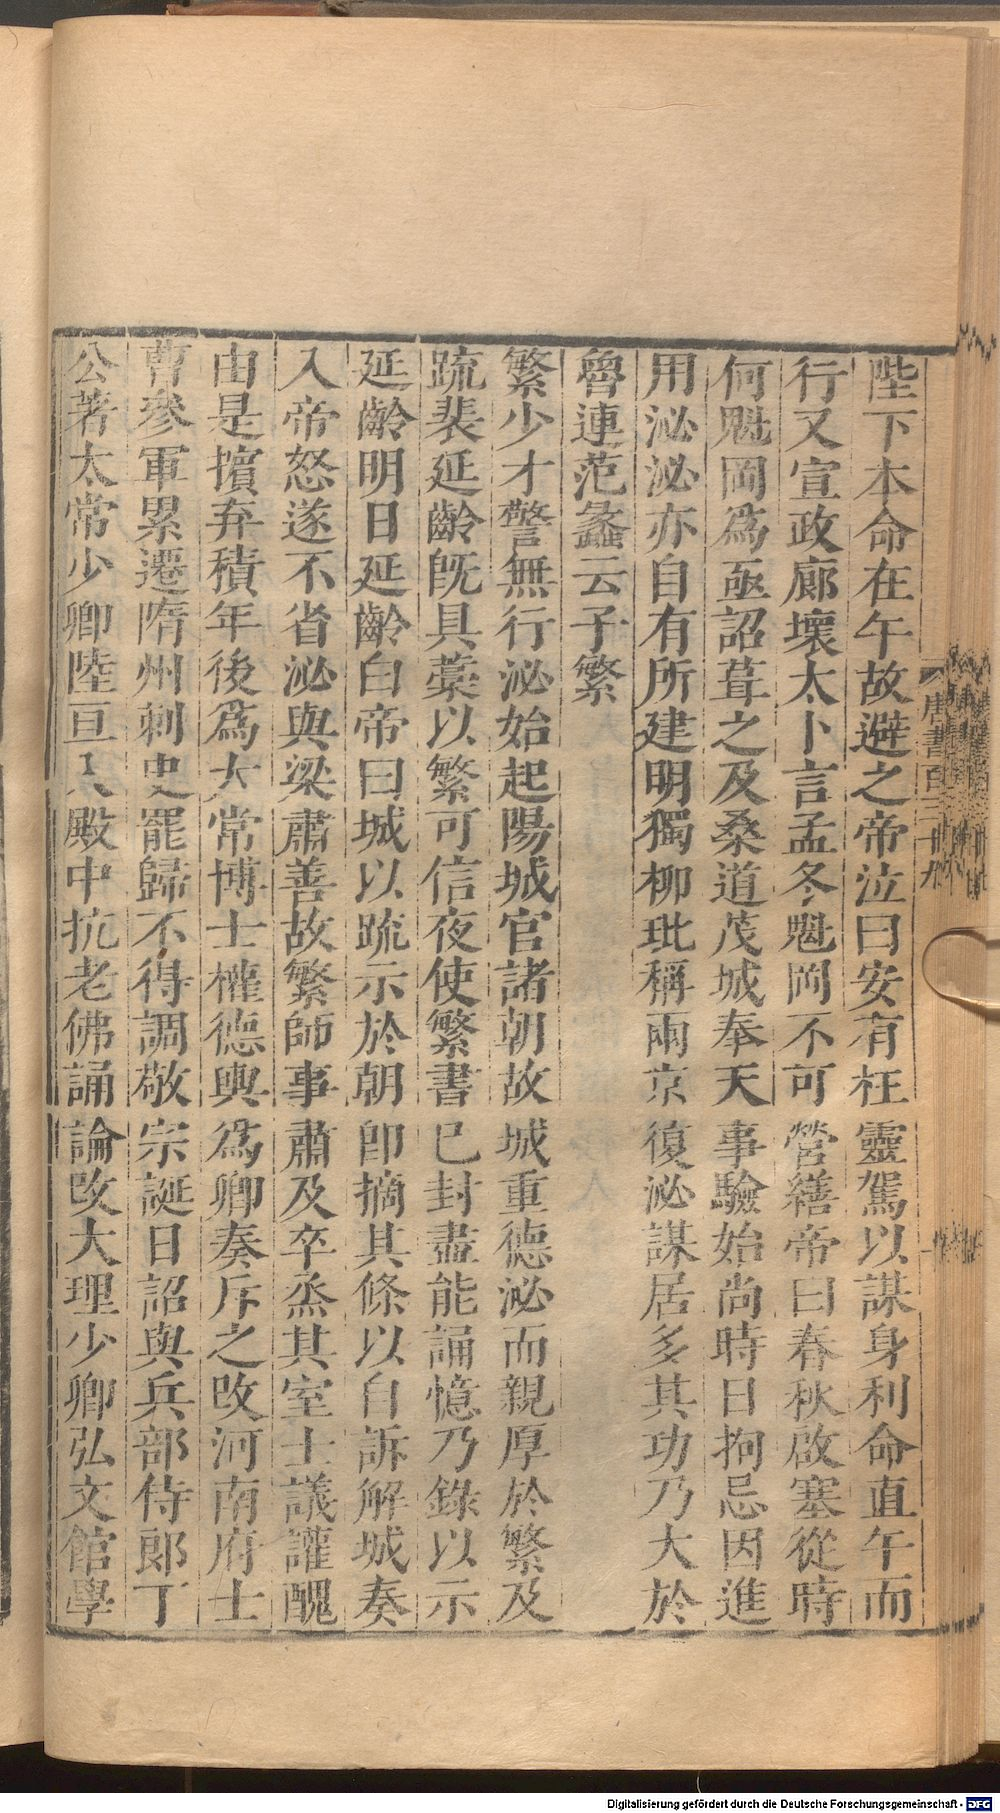 陛下本命在午故避之帝泣曰安有枉靈駕以謀身利命直午而
行又宣政廊壞太卜言孟冬魁岡不可營繕帝曰春秋啟塞從時
何魁岡爲亟詔葺之及桑道茂城奉天事驗始尚時日拘忌因進
用泌泌亦自有所建明獨柳玭稱兩京復泌謀居多其功乃大於
魯連范蠡云子繁
繁少才警無行泌始起陽城官諸朝故城重德泌而親厚於繁及
疏裴延齡既具藁以繁可信夜使繁書已封盡能誦憶乃錄以示
延齡明日延齡白帝曰城以疏示於朝即摘其條以自訴解城奏
入帝怒遂不省泌與梁肅善故繁師事肅及卒烝其室士議讙醜
由是擯弃積年後爲太常博士權德輿爲卿奏斥之改河南府士
曹參軍累遷隋州刺史罷歸不得調敬宗誕日詔與兵部侍郎丁
公著太常少卿陸亘入殿中抗老佛誦論改大理少卿弘文館學
唐書百三十九
Digitalisierung gefördert durch die Deutsche Forschungsgemeinschaft - DFG